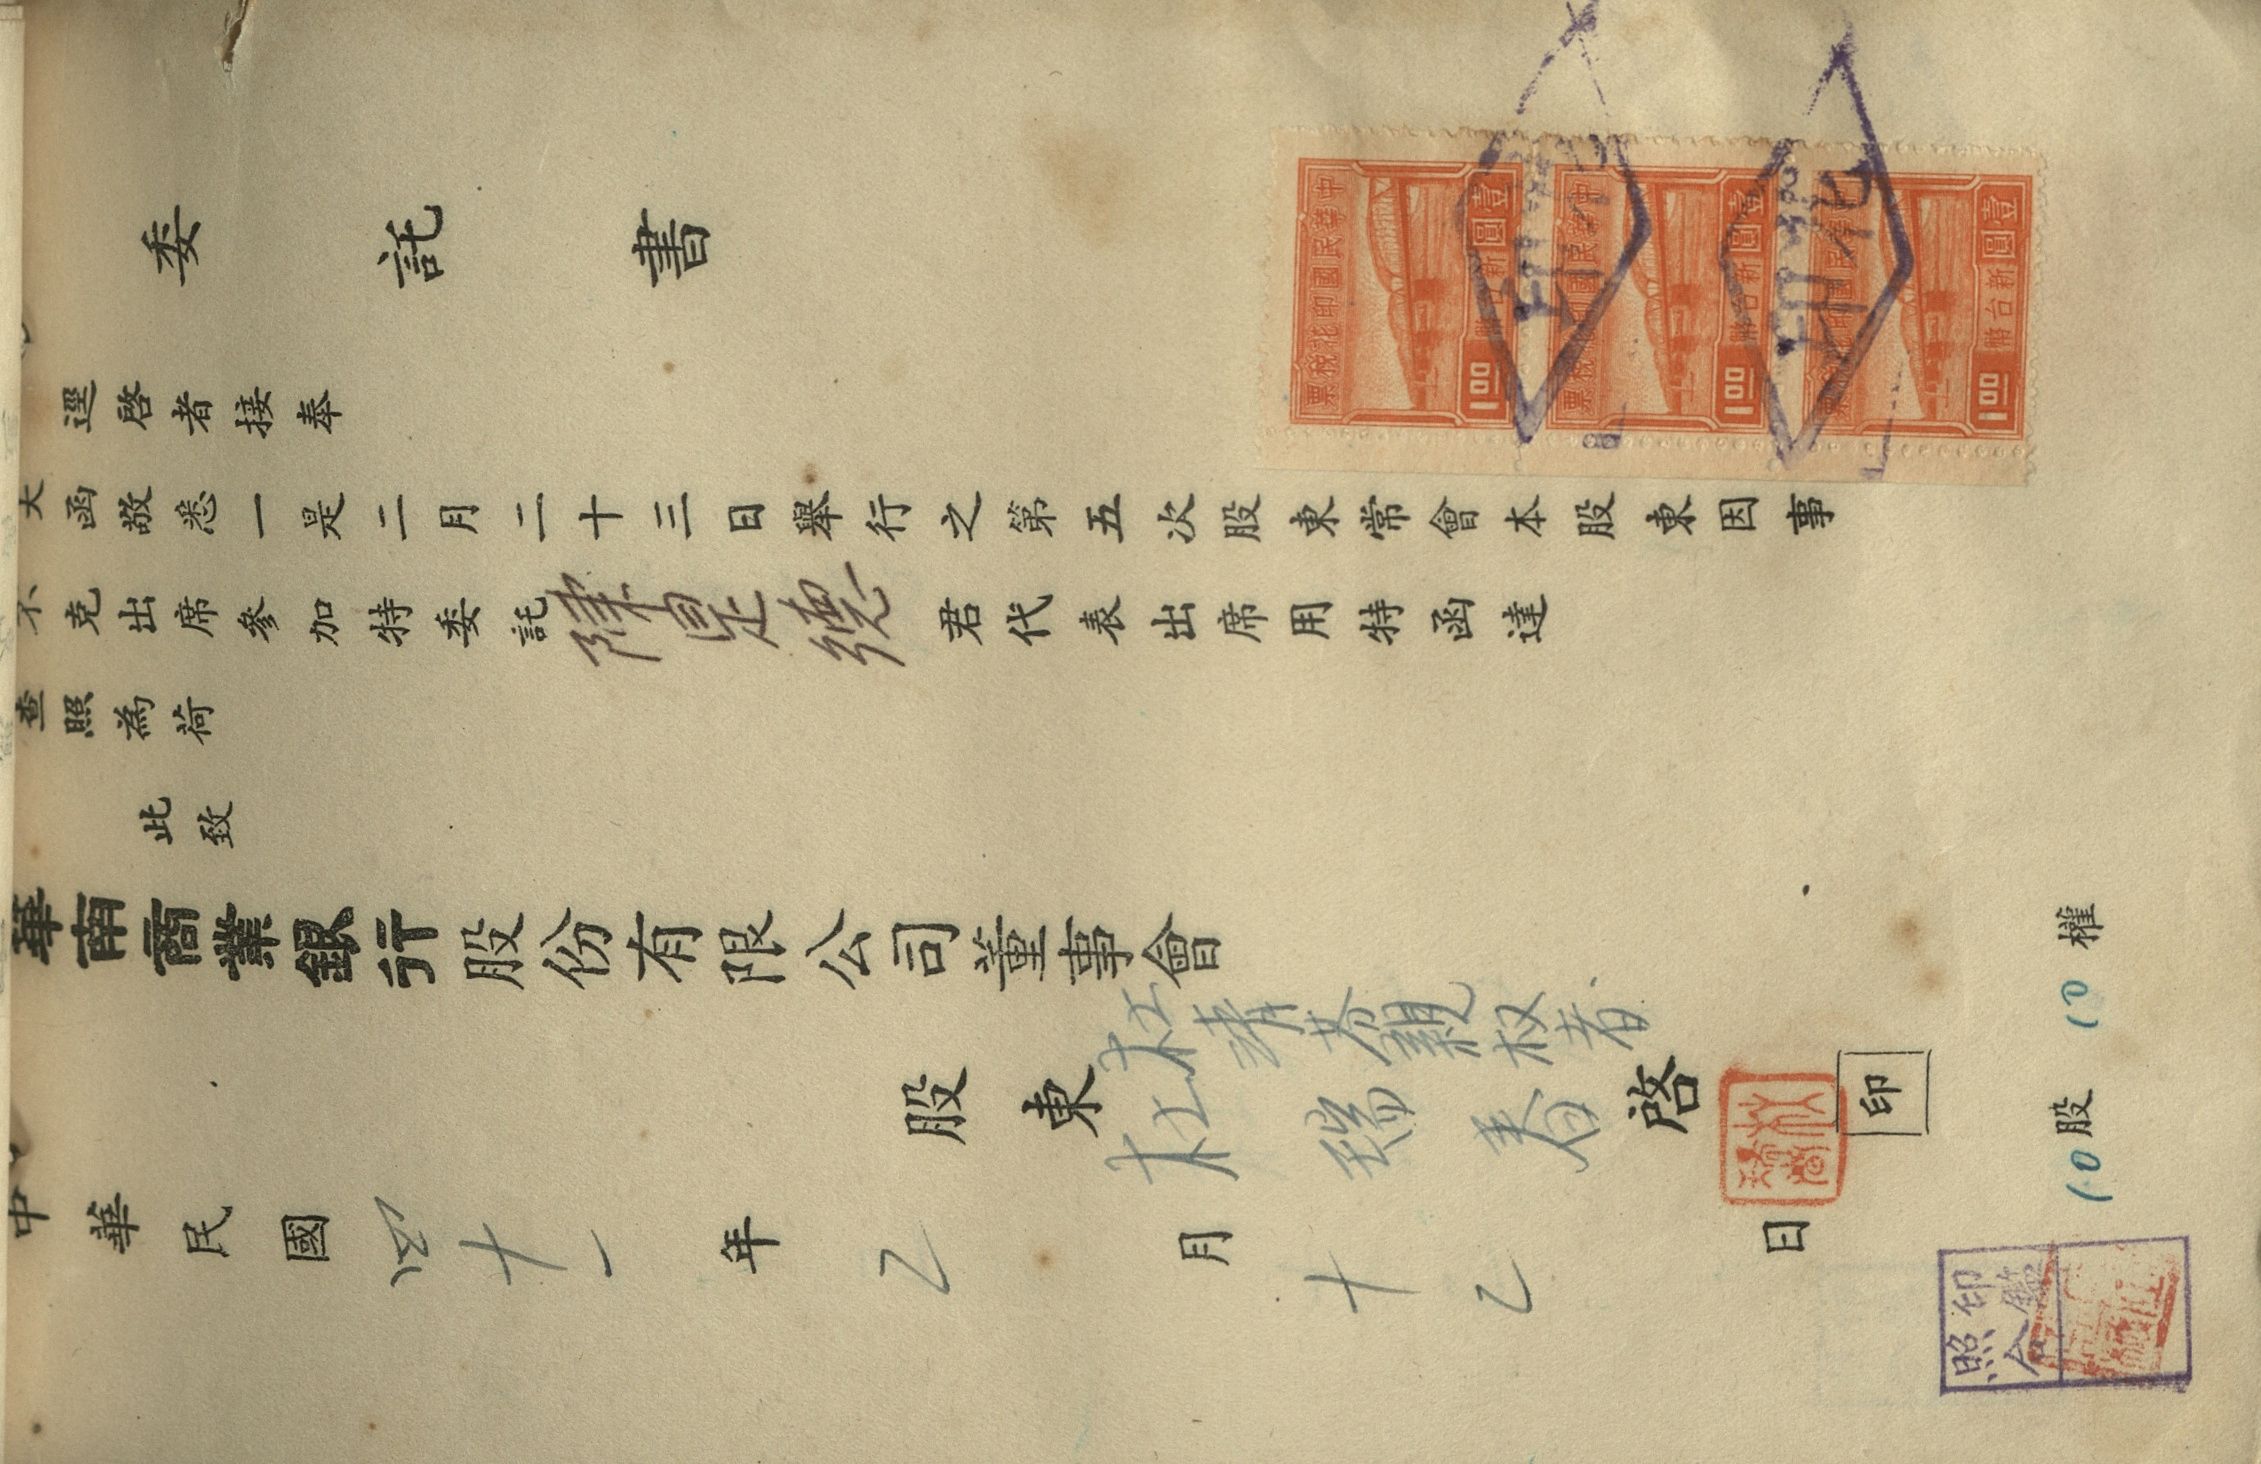 委託書
逕啓者接奉
大函敬悉一是二月二十三日舉行之第五次股東常會本股東因事
不克出席參加特委託陳是德君代表出席用特函達
查照為荷
此致
華南商業銀行股份有限公司董事會
杜清春親权者
股東杜瑞春啓
印
中華民國四十一年乙月十乙日
10股10權
中華民國印花稅票
壹圓新台幣
1.00
中華民國印花稅票
壹圓新台幣
1.00
中華民國印花稅票
壹圓新台幣
1.00
印鑑
照合